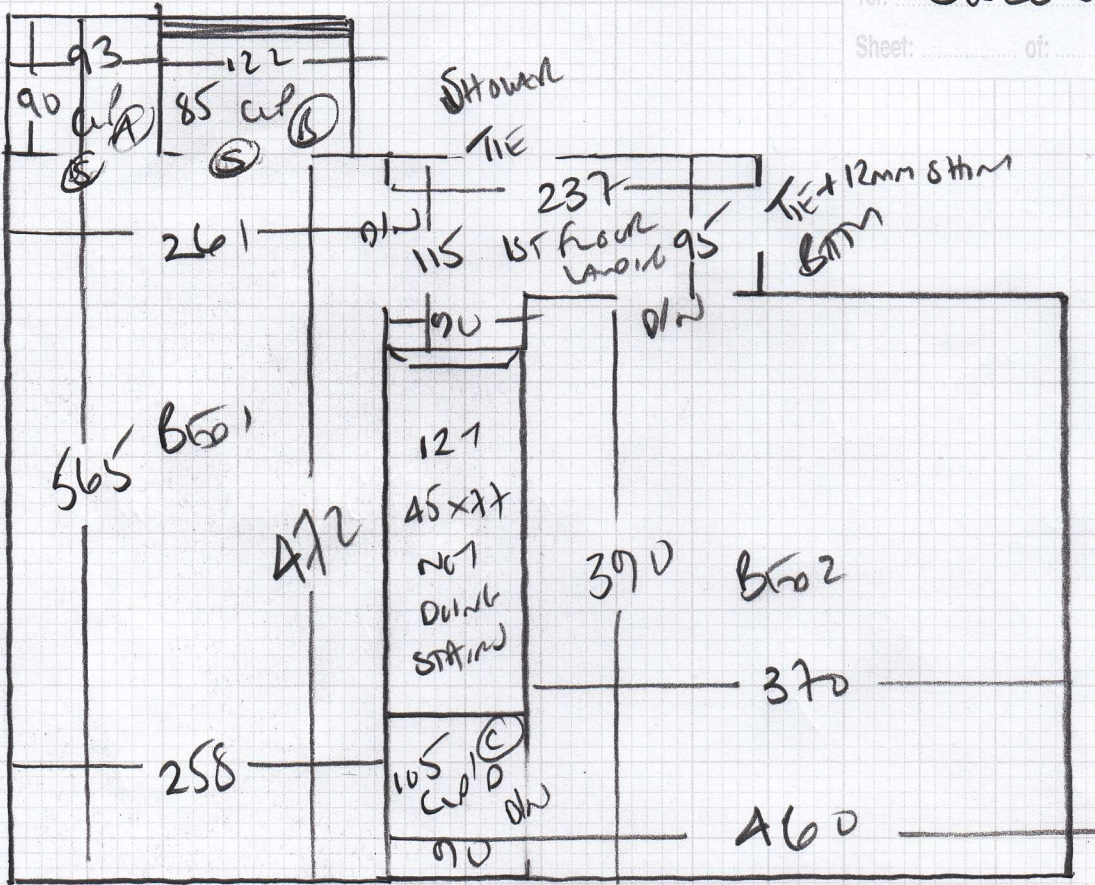 Sheet: of:
93
122
90
CUP A
85 CUP B
S
S
SHOWER
TIE
237
TIE + 12mm SHIM
BTM
261
D/W
115
1ST FLOOR
LANDING
95
90
D/W
BED 1
565
472
127
45x77
NOT
DOING
STAIRS
390
BED 2
370
258
105
CUP'D
C
D/W
90
460